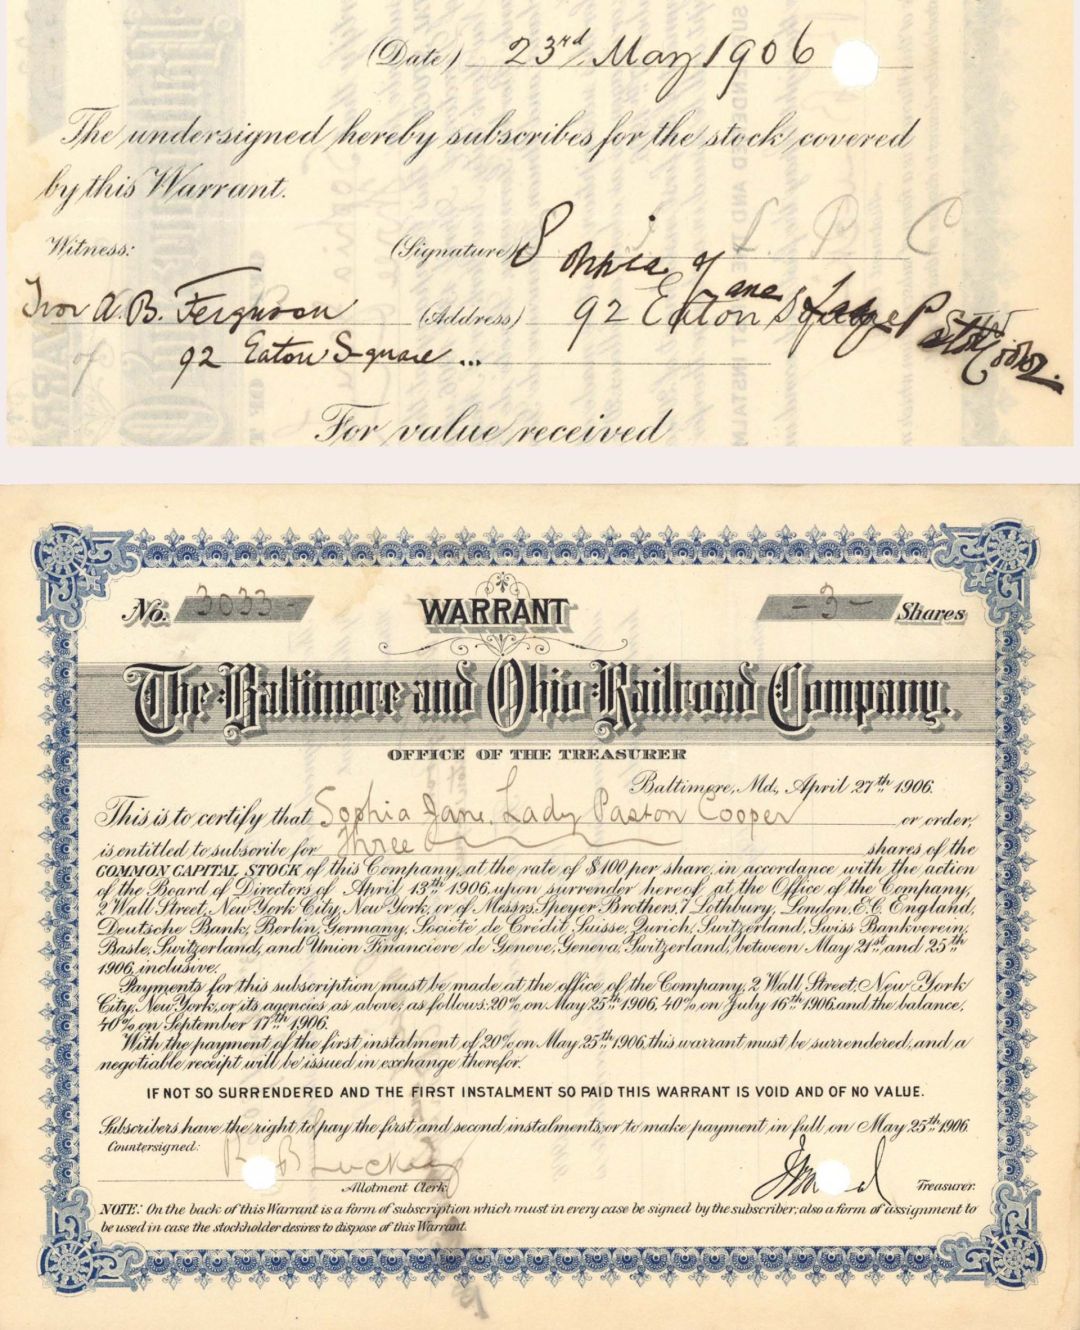 (Date) 23rd May 1906
The undersigned hereby subscribes for the stock covered
by this Warrant.
Witness:
(Signature) Sophia Jane Lady Paston Cooper.
S. J. L. P. C
Ivor A. B. Ferguson (Address) 92 Eaton Square
of 92 Eaton Square ...
For value received
No. 3033 - WARRANT - 3 - Shares
The Baltimore and Ohio Railroad Company.
OFFICE OF THE TREASURER
Baltimore, Md., April 27th 1906.
This is to certify that Sophia Jane, Lady Paston Cooper or order,
is entitled to subscribe for Three shares of the
COMMON CAPITAL STOCK of this Company, at the rate of $100 per share, in accordance with the action
of the Board of Directors of April 13th 1906, upon surrender hereof, at the Office of the Company,
2 Wall Street, New York City, New York, or of Messrs. Speyer Brothers, 7 Lothbury, London, E.C. England,
Deutsche Bank, Berlin, Germany, Societe de Crédit Suisse, Zurich, Switzerland, Swiss Bankverein,
Basle, Switzerland, and Union Financiere de Geneve, Geneva, Switzerland, between May 21st and 25th
1906, inclusive.
Payments for this subscription must be made at the office of the Company, 2 Wall Street, New York
City, New York, or its agencies as above, as follows: 20% on May 25th 1906, 40% on July 16th 1906 and the balance,
40% on September 17th 1906.
With the payment of the first instalment of 20% on May 25th 1906, this warrant must be surrendered, and a
negotiable receipt will be issued in exchange therefor.
IF NOT SO SURRENDERED AND THE FIRST INSTALMENT SO PAID THIS WARRANT IS VOID AND OF NO VALUE.
Subscribers have the right to pay the first and second instalments, or to make payment in full on May 25th 1906
Countersigned:
Allotment Clerk. Treasurer.
NOTE: On the back of this Warrant is a form of subscription which must in every case be signed by the subscriber; also a form of assignment to
be used in case the stockholder desires to dispose of this Warrant.